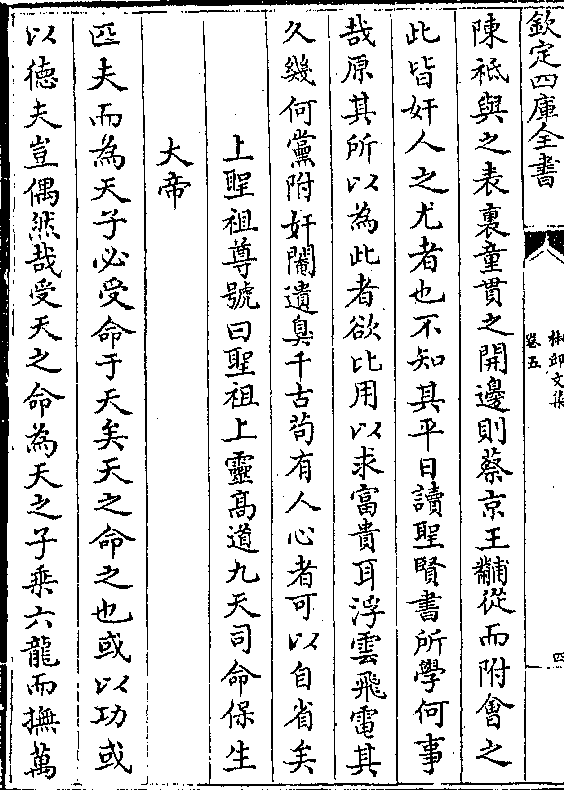 欽定四庫全書
柳卬文集
卷五
四
陳衹與之表裏童貫之開邊則蔡京王黼從而附會之
此皆奸人之尤者也不知其平日讀聖賢書所學何事
哉原其所以為此者欲比用以求富貴耳浮雲飛電其
久幾何黨附奸閹遺臭千古茍有人心者可以自省矣
上聖祖尊號曰聖祖上靈髙道九天司命保生
大帝
匹夫而為天子必受命于天矣天之命之也或以功或
以德夫豈偶然哉受天之命為天之子乗六龍而撫萬